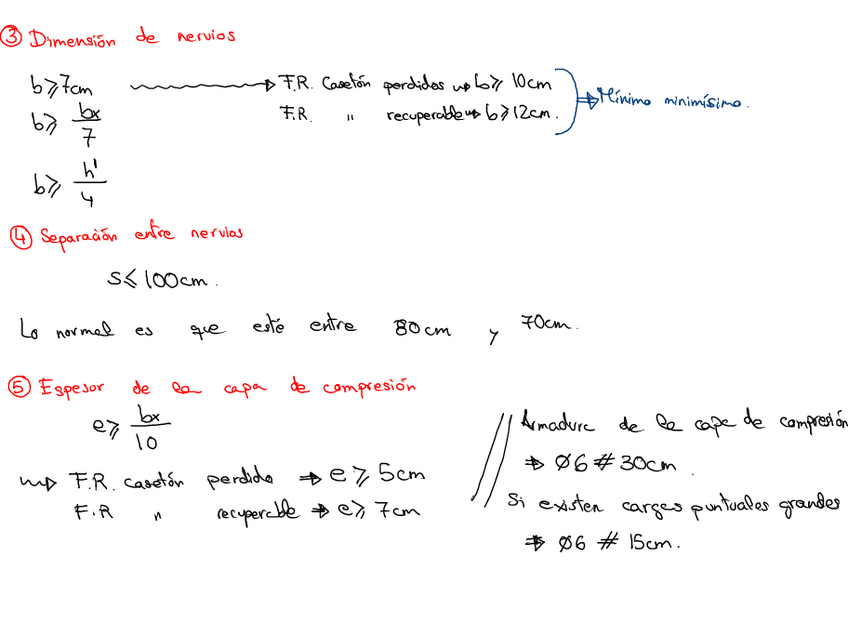 ③ Dimensión de nervios
b ≥ 7cm → F.R. Casetón perdidos → b ≥ 10cm
F.R. " recuperable → b ≥ 12cm. ⇒ Mínimo minimísimo.
b ≥ bx/7
b ≥ h'/4
④ Separación entre nervios
s ≤ 100cm.
Lo normal es que esté entre 80cm y 70cm.
⑤ Espesor de la capa de compresión
e ≥ bx/10
→ F.R. casetón perdido → e ≥ 5cm
F.R " recuperable → e ≥ 7cm
// Armadura de la capa de compresión
→ Ø6 # 30cm.
Si existen cargas puntuales grandes
→ Ø6 # 15cm.